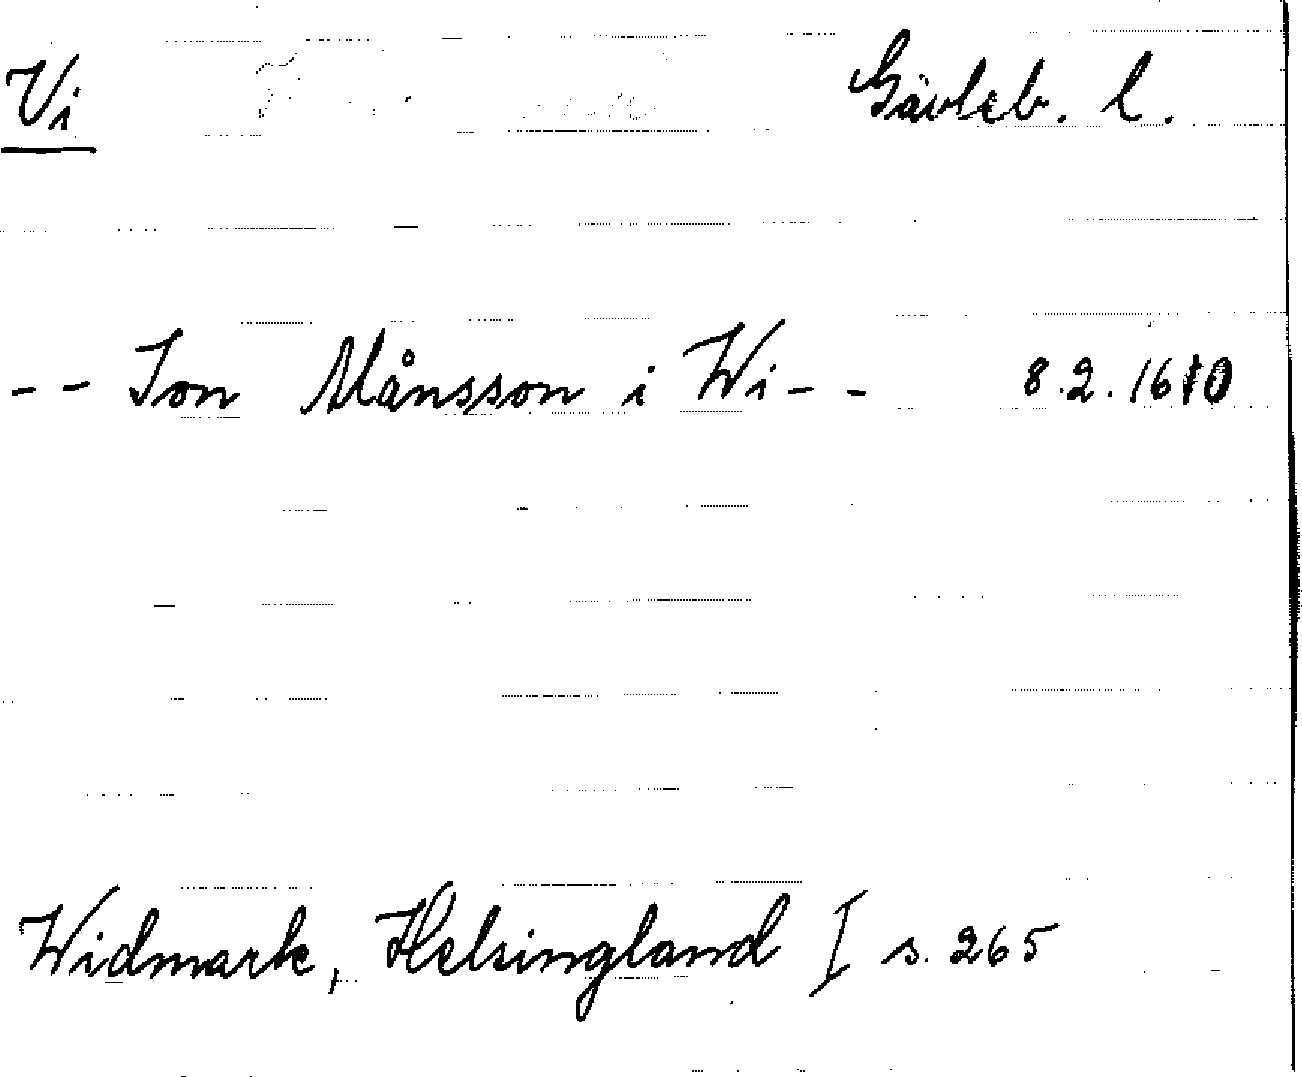 Vi Gävleb. l.
-- Jon Månsson i Wi -- 8.2.1610
Widmark, Helsingland I s. 265